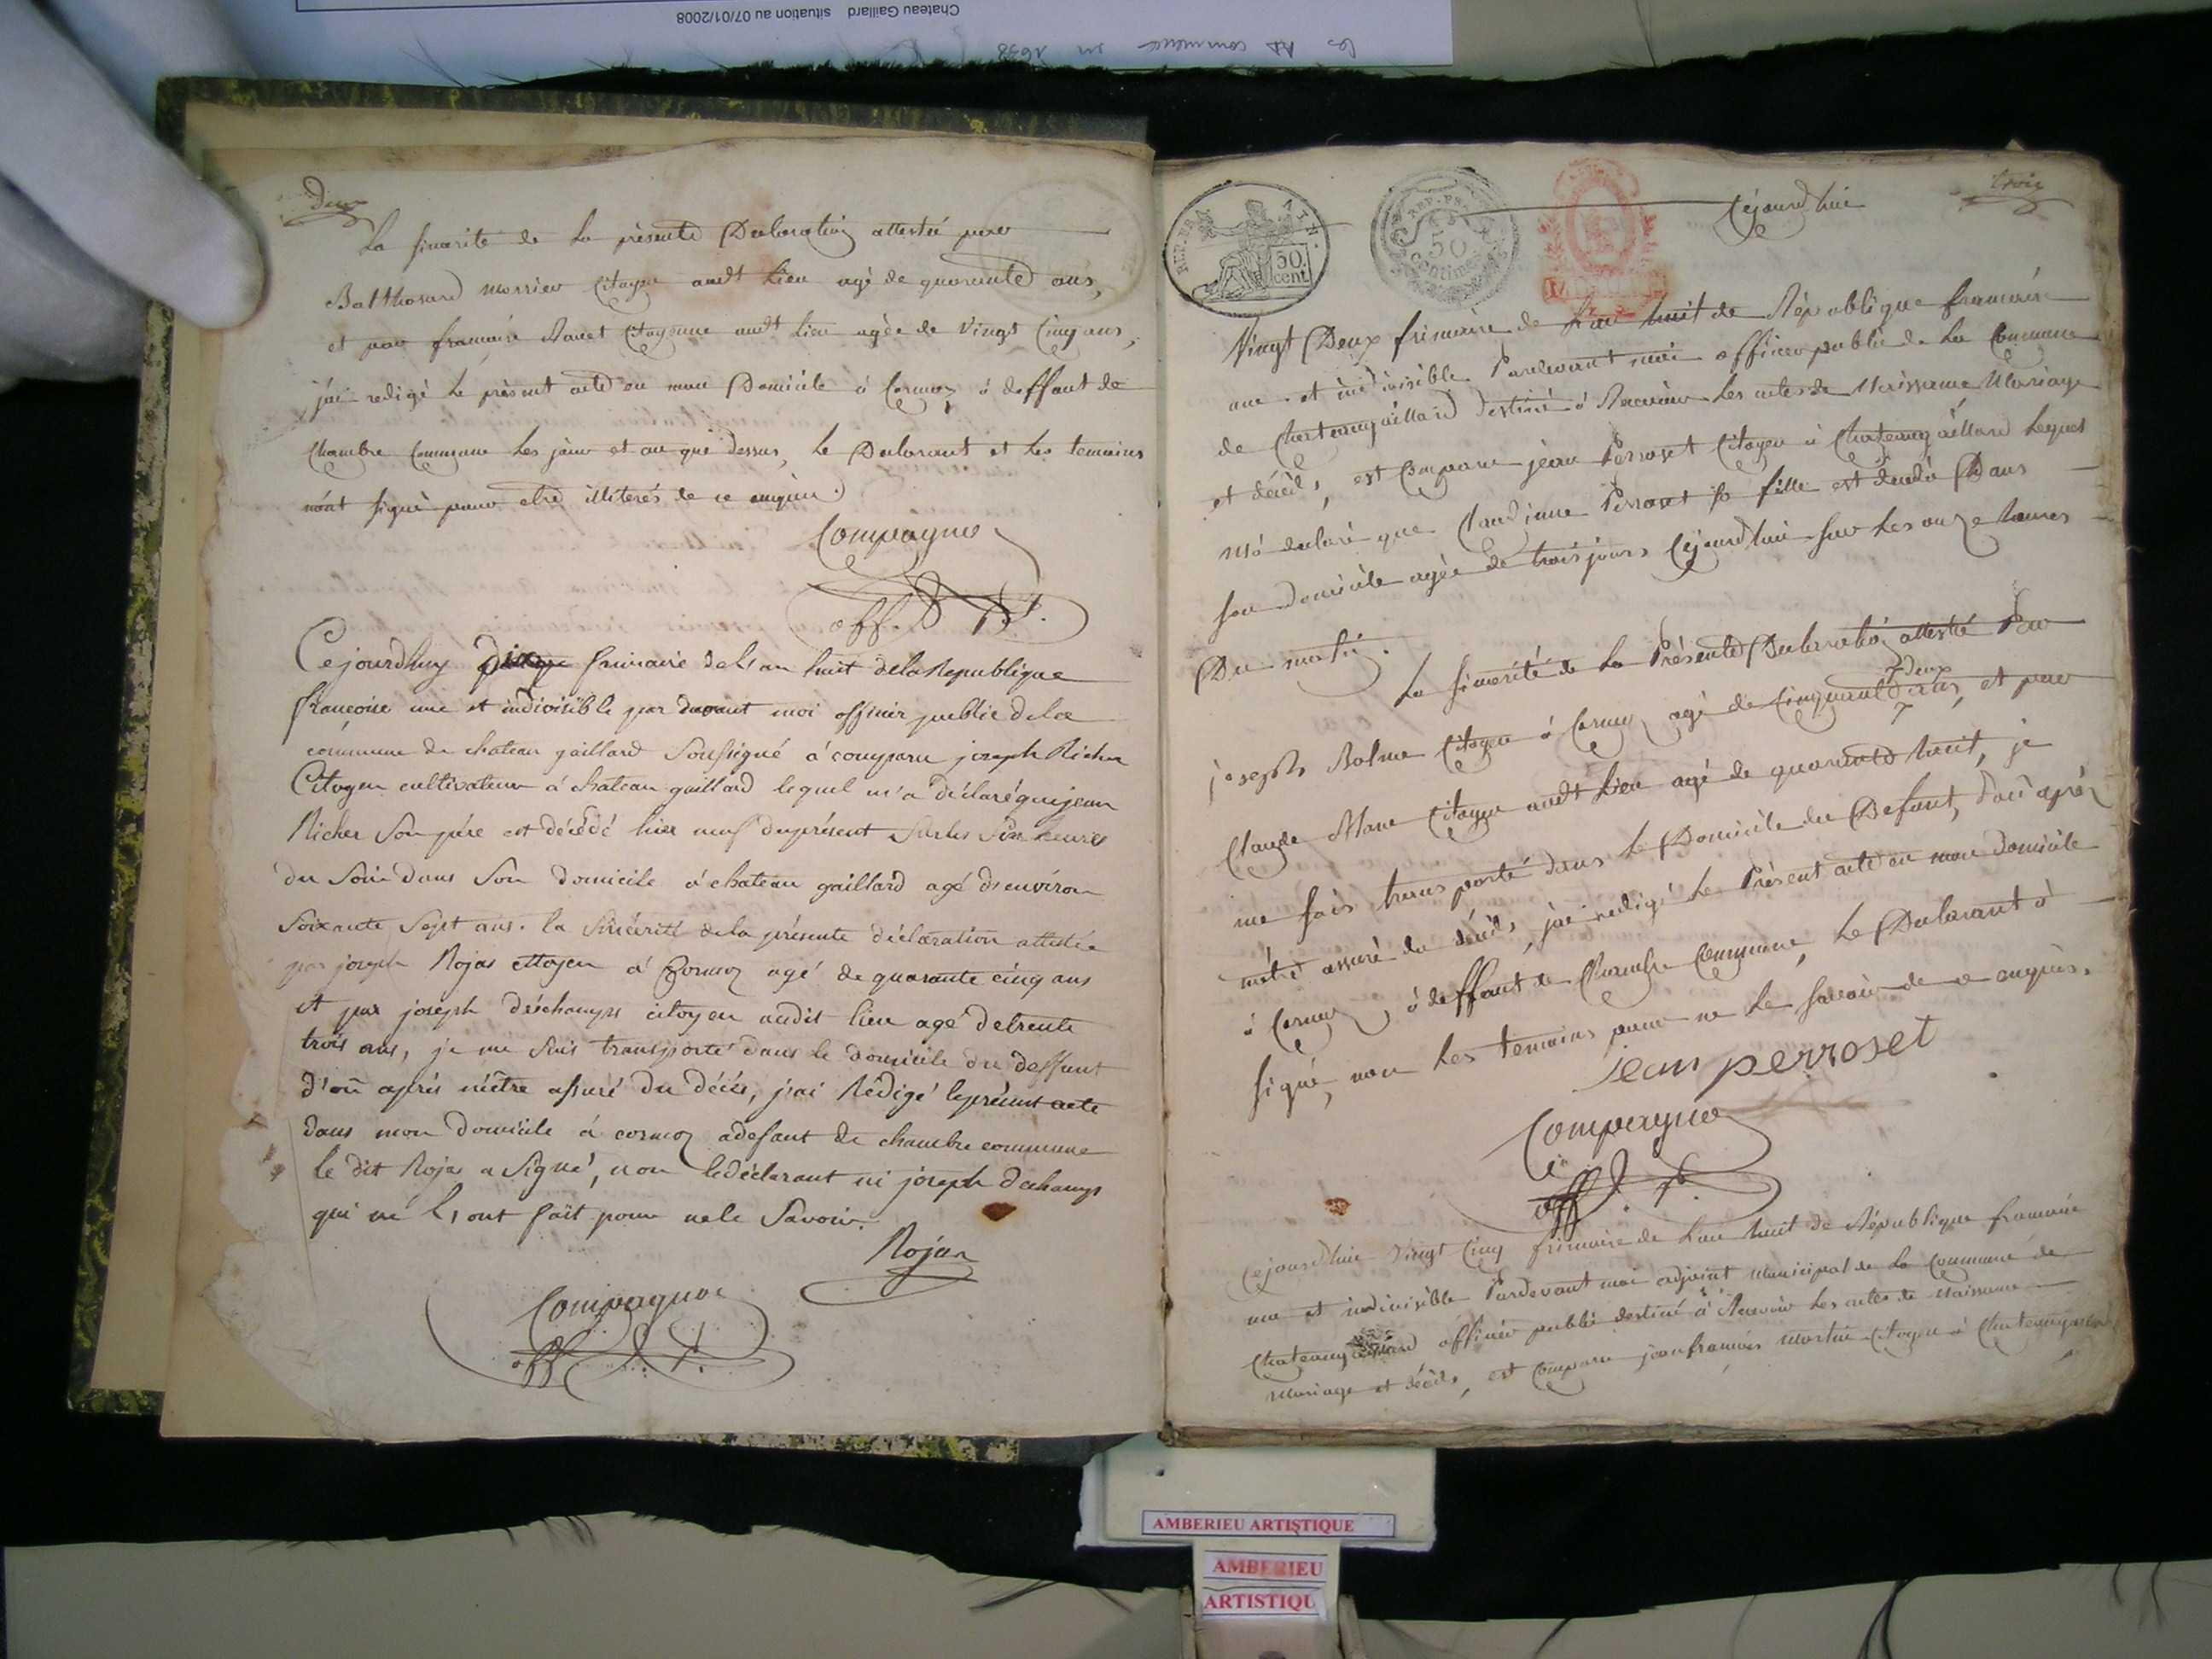 Chateau Gaillard situation au 07/01/2008
deux
La sincerité de la présente Declaration attestée par
Balthazard Citoyen audt lieu agé de quarante ans,
et par Citoyenne audt lieu agée de Vingt Cinq ans,
j'ai redigé le présent acte en mon Domicile à Cormoz à deffaut de
Chambre Commune les jour et an que dessus, le Declarant et les temoins
n'ont signé pour etre illiterés de ce enquis.
Compagnon
off. P.
Cejourdhuy frimaire de l'an huit de la Republique
françoise une et indivisible par devant moi officier public de la
commune de chateau gaillard Soussigné à comparu joseph Richer
Citoyen cultivateur à chateau gaillard lequel m'a déclaré que jean
Richer Son pére est décédé hier neuf du présent Sur les Six heures
du Soir dans Son domicile à chateau gaillard agé d'environ
Soixante Sept ans. la Sincérité de la présente déclaration attestée
par joseph Rojas citoyen à Cormoz agé de quarante cinq ans
et par joseph déchamps citoyen audit lieu agé de trente
trois ans, je me Suis transporté dans le domicile du deffunt
d'où aprés m'être assuré du décés, j'ai Rédigé le présent acte
dans mon domicile à cormoz a defaut de chambre commune
le dit Rojas a Signé, non le déclarant ni joseph dechamps
qui ne l'ont fait pour ne le Savoir.
Rojas
Compagnon
off. P.
trois
REP. FRA
50.
cent
REP. FR.
50
Centimes
Cejourdhui
Vingt Deux frimaire de l'an huit de République francaise
une et indivisible Pardevant moi officier public de la Commune
de Chateaugaillard destiné à Recevoir les actes de Naissance Mariage
et décés, est Comparu jean Perroset Citoyen à Chateaugaillard lequel
m'à declaré que Claudine Perroset sa fille est décédé Dans
son domicile agée de trois jours Cejourdhui sur les onze heures
Du matin.
La sincérité de la Présente Declaration attestée Par
joseph Bolme Citoyen à Cormoz agé de Cinquante deux ans, et par
Claude Citoyen audt lieu agé de quarante huit, je
me suis transporté dans le Domicile du Defunt, d'où aprés
m'étre assuré du décés, j'ai redigé le Présent acte en mon domicile
à Cormoz, à deffaut de Chambre Commune, le Declarant à
signé, non les temoins pour ne le savoir de ce enquis.
jean perroset
Compagnon
off. P.
Cejourdhui Vingt Cinq frimaire de l'an huit de République francaise
une et indivisible Pardevant moi adjoint Municipal de la Commune de
Chateaugaillard officier public destiné à Recevoir les actes de Naissance
Mariage et décés, est Comparu jean francois Martin Citoyen à Chateaugaillard
AMBERIEU ARTISTIQUE
AMBERIEU
ARTISTIQU